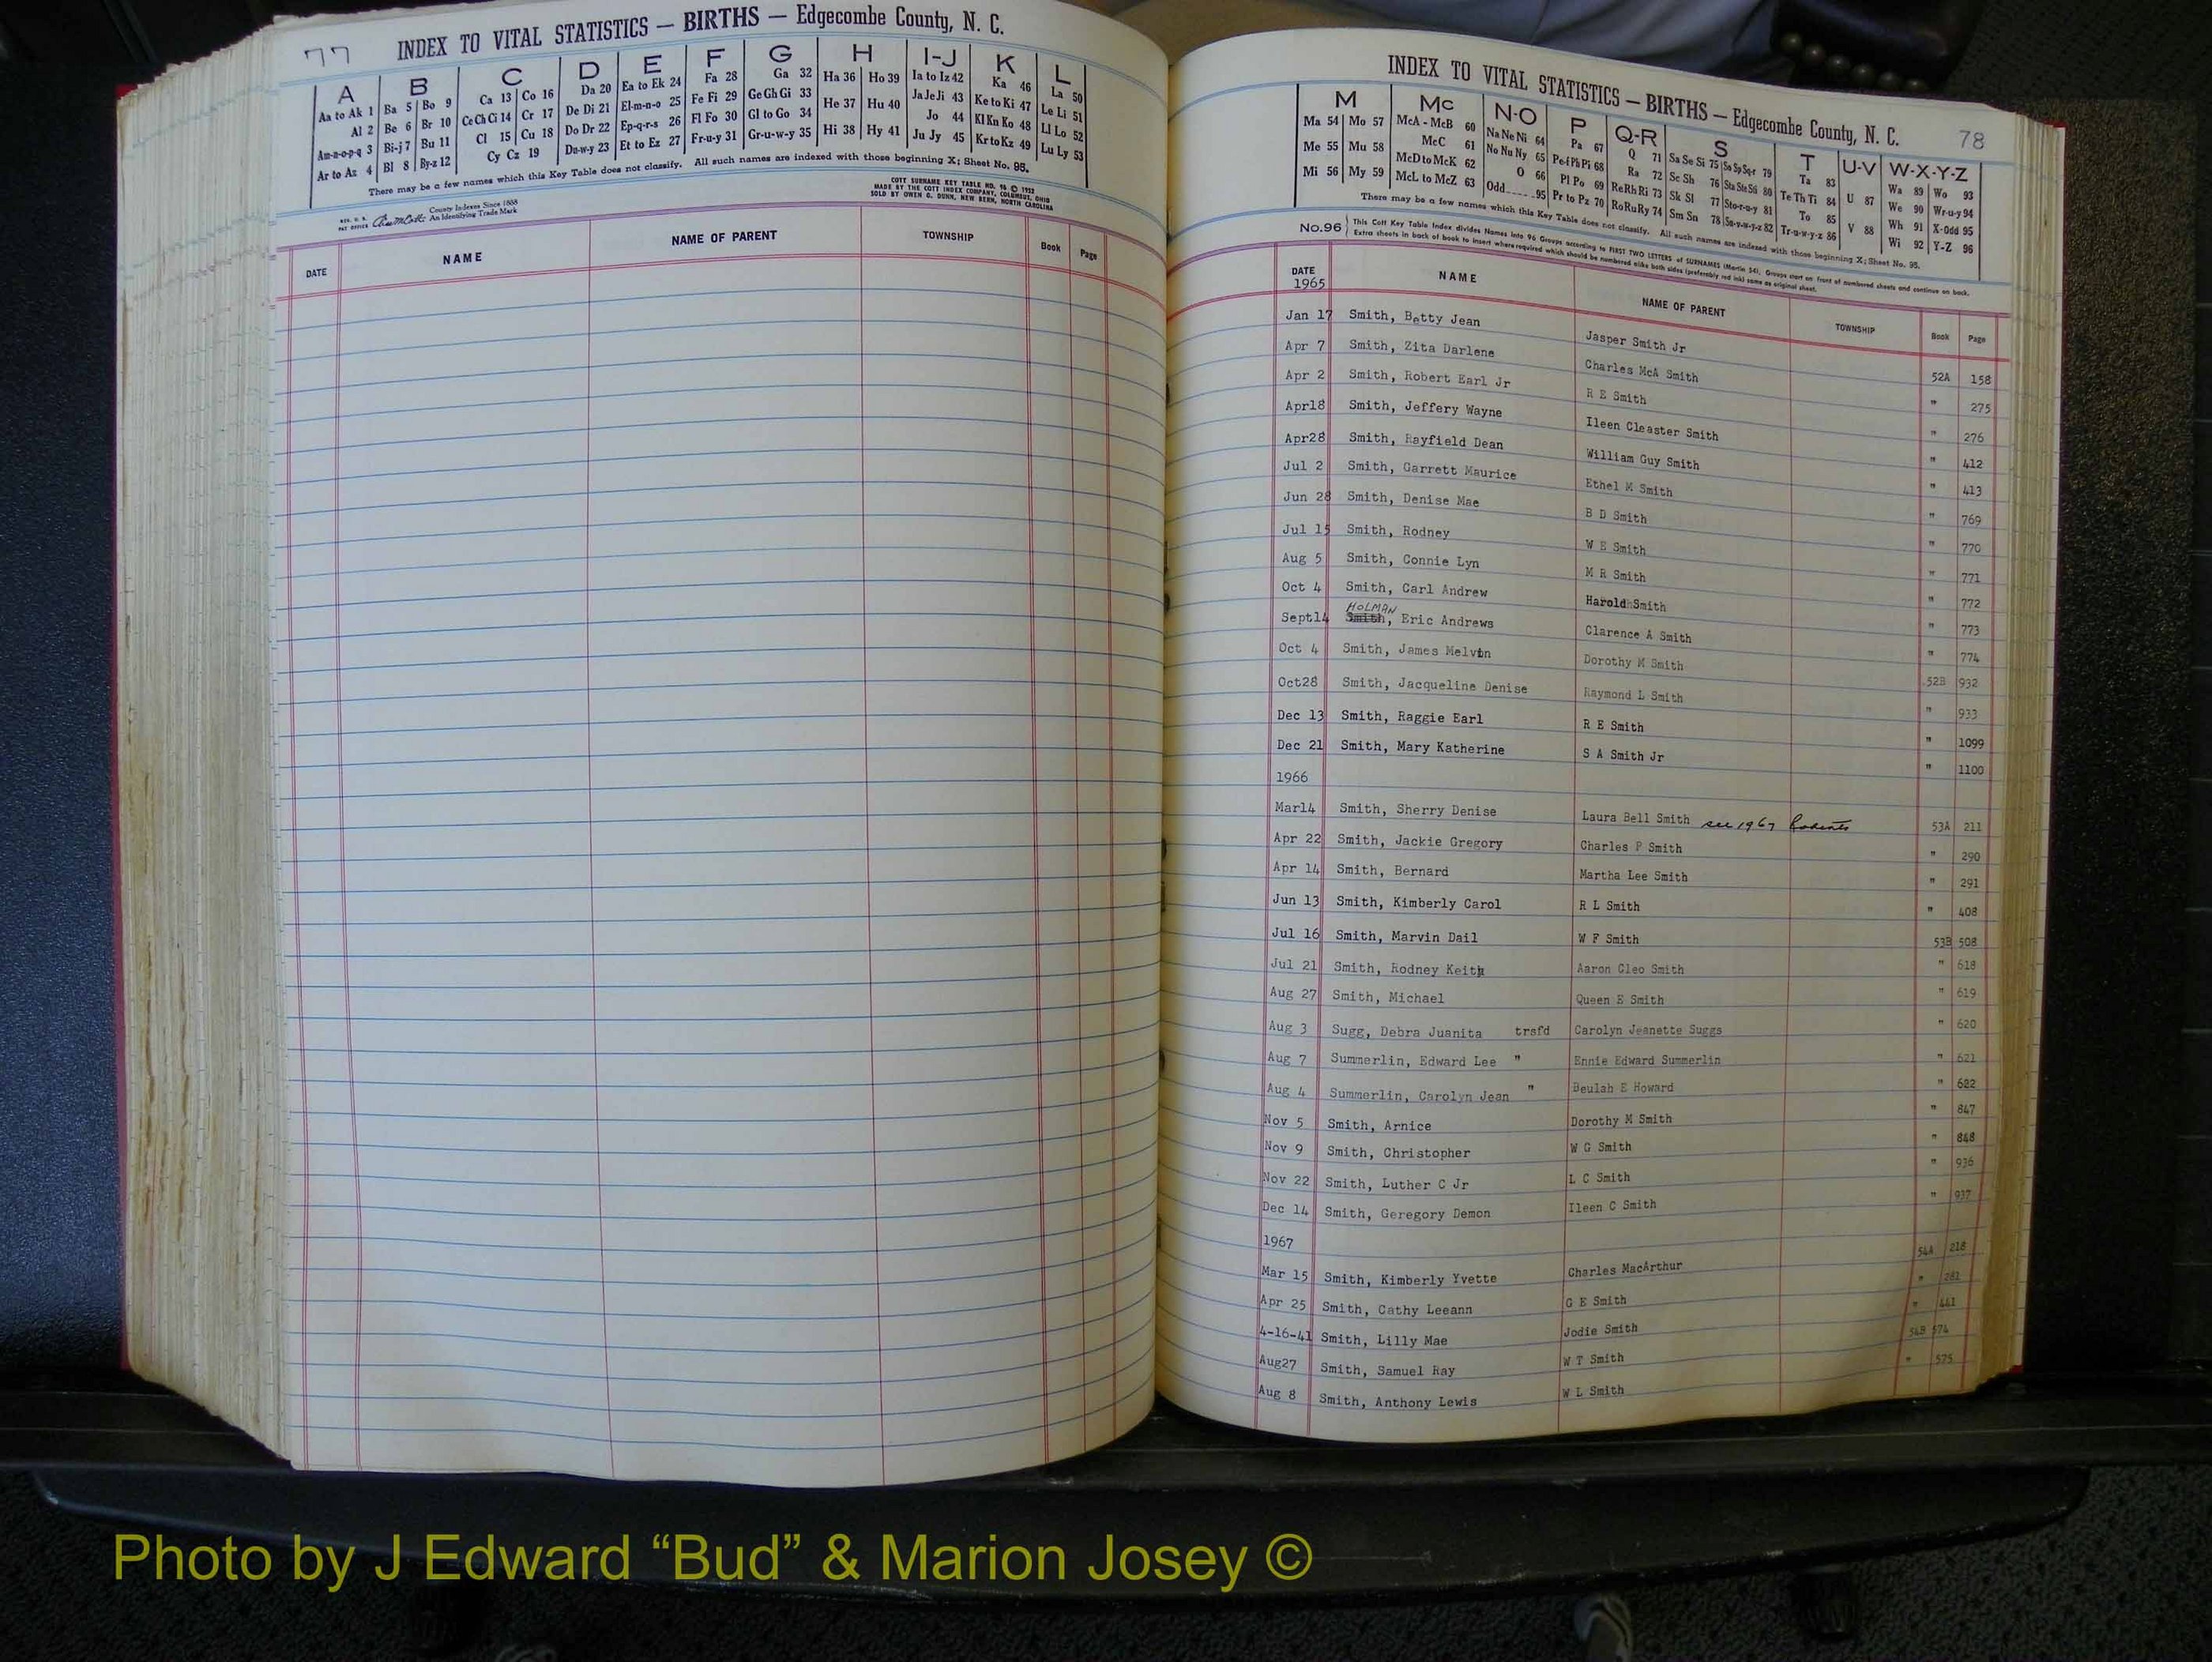 77
INDEX TO VITAL STATISTICS — BIRTHS — Edgecombe County, N. C.
A B C D E F G H I-J K L
Aa to Ak 1 Ba 5 Bo 9 Ca 13 Co 16 Da 20 Ea to Ek 24 Fa 28 Ga 32 Ha 36 Ho 39 Ia to Iz 42 Ka 46 La 50
Al 2 Be 6 Br 10 Ce Ch Ci 14 Cr 17 De Di 21 El-m-n-o 25 Fe Fi 29 Ge Gh Gi 33 He 37 Hu 40 Ja Je Ji 43 Ke to Ki 47 Le Li 51
Am-n-o-p-q 3 Bi-j 7 Bu 11 Cl 15 Cu 18 Do Dr 22 Ep-q-r-s 26 Fl Fo 30 Gl to Go 34 Hi 38 Hy 41 Jo 44 Kl Kn Ko 48 Ll Lo 52
Ar to Az 4 Bl 8 By-z 12 Cy Cz 19 Du-w-y 23 Et to Ez 27 Fr-u-y 31 Gr-u-w-y 35 Ju Jy 45 Kr to Kz 49 Lu Ly 53
There may be a few names which this Key Table does not classify. All such names are indexed with those beginning X; Sheet No. 95.
REG. U. S. PAT OFFICE County Indexes Since 1888 An Identifying Trade Mark
COTT SURNAME KEY TABLE NO. 96 © 1952
MADE BY THE COTT INDEX COMPANY, COLUMBUS, OHIO
SOLD BY OWEN G. DUNN, NEW BERN, NORTH CAROLINA
DATE NAME NAME OF PARENT TOWNSHIP Book Page
INDEX TO VITAL STATISTICS — BIRTHS — Edgecombe County, N. C. 78
M Mc N-O P Q-R S T U-V W-X-Y-Z
Ma 54 Mo 57 McA - McB 60 Na Ne Ni 64 Pa 67 Q 71 Sa Se Si 75 So Sp Sq-r 79 Ta 83 U 87 Wa 89 Wo 93
Me 55 Mu 58 McC 61 No Nu Ny 65 Pe-f Ph Pi 68 Ra 72 Sc Sh 76 Sta Ste Sti 80 Te Th Ti 84 V 88 We 90 Wr-u-y 94
Mi 56 My 59 McD to McK 62 O 66 Pl Po 69 Re Rh Ri 73 Sk Sl 77 Sto-r-u-y 81 To 85 Wh 91 X-Odd 95
McL to McZ 63 Odd 95 Pr to Pz 70 Ro Ru Ry 74 Sm Sn 78 Su-v-w-y-z 82 Tr-u-w-y-z 86 Wi 92 Y-Z 96
There may be a few names which this Key Table does not classify. All such names are indexed with those beginning X; Sheet No. 95.
No.96 This Cott Key Table Index divides Names into 96 Groups according to FIRST TWO LETTERS of SURNAMES (Martin 54). Groups start on front of numbered sheets and continue on back.
Extra sheets in back of book to insert where required which should be numbered alike both sides (preferably red ink) same as original sheet.
DATE NAME NAME OF PARENT TOWNSHIP Book Page
1965
Jan 17 Smith, Betty Jean Jasper Smith Jr 52A 158
Apr 7 Smith, Zita Darlene Charles McA Smith " 275
Apr 2 Smith, Robert Earl Jr R E Smith " 276
Apr18 Smith, Jeffery Wayne Ileen Cleaster Smith " 412
Apr28 Smith, Rayfield Dean William Guy Smith " 413
Jul 2 Smith, Garrett Maurice Ethel M Smith " 769
Jun 28 Smith, Denise Mae B D Smith " 770
Jul 15 Smith, Rodney W E Smith " 771
Aug 5 Smith, Connie Lyn M R Smith " 772
Oct 4 Smith, Carl Andrew Harold Smith " 773
HOLMAN
Sept14 Smith, Eric Andrews Clarence A Smith " 774
Oct 4 Smith, James Melvin Dorothy M Smith 52B 932
Oct28 Smith, Jacqueline Denise Raymond L Smith " 933
Dec 13 Smith, Raggie Earl R E Smith " 1099
Dec 21 Smith, Mary Katherine S A Smith Jr " 1100
1966
Mar14 Smith, Sherry Denise Laura Bell Smith see 1967 53A 211
Apr 22 Smith, Jackie Gregory Charles P Smith " 290
Apr 14 Smith, Bernard Martha Lee Smith " 291
Jun 13 Smith, Kimberly Carol R L Smith " 408
Jul 16 Smith, Marvin Dail W F Smith 53B 508
Jul 21 Smith, Rodney Keith Aaron Cleo Smith " 618
Aug 27 Smith, Michael Queen E Smith " 619
Aug 3 Sugg, Debra Juanita trsfd Carolyn Jeanette Suggs " 620
Aug 7 Summerlin, Edward Lee " Ennie Edward Summerlin " 621
Aug 4 Summerlin, Carolyn Jean " Beulah E Howard " 622
Nov 5 Smith, Arnice Dorothy M Smith " 847
Nov 9 Smith, Christopher W G Smith " 848
Nov 22 Smith, Luther C Jr L C Smith " 936
Dec 14 Smith, Geregory Demon Ileen C Smith " 937
1967
Mar 15 Smith, Kimberly Yvette Charles MacArthur 54A 218
Apr 25 Smith, Cathy Leeann G E Smith " 281
4-16-41 Smith, Lilly Mae Jodie Smith " 441
Aug27 Smith, Samuel Ray W T Smith 54B 574
Aug 8 Smith, Anthony Lewis W L Smith " 575
Photo by J Edward “Bud” & Marion Josey ©